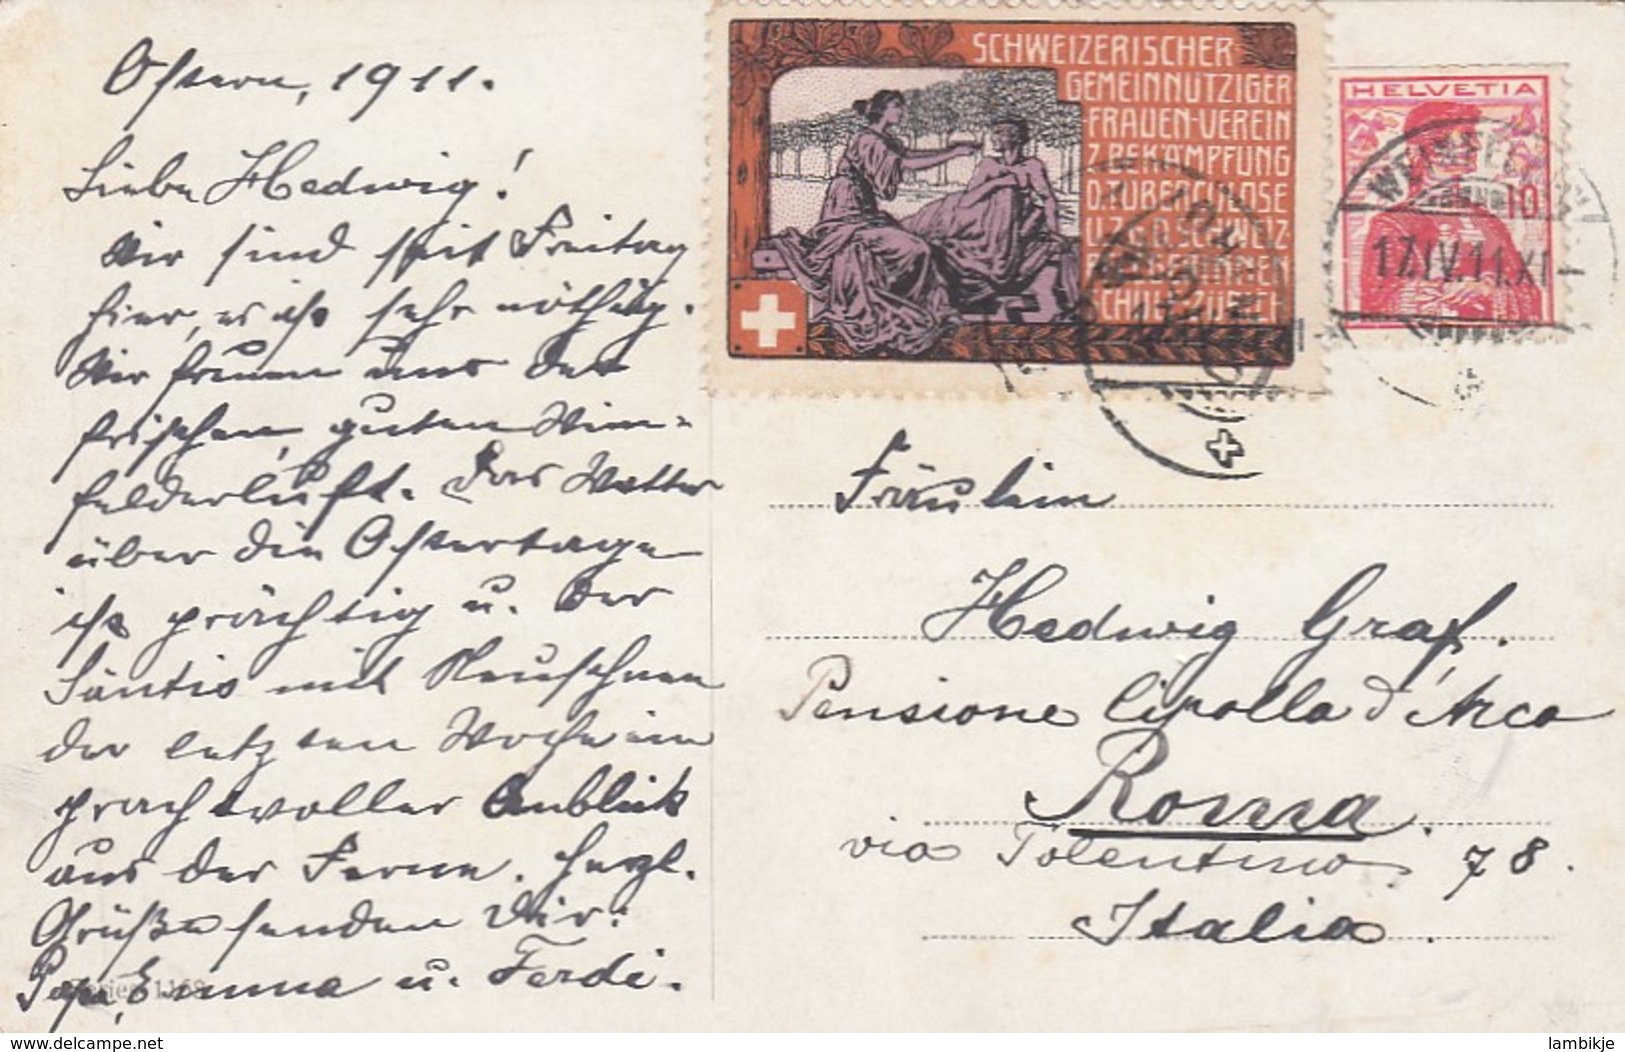 Ostern, 1911.
Liebe Hedwig!
Wir sind seit Freitag
hier, es ist sehr nöthig.
Wir freuen uns der
frischen, guten Wein=
felderluft. Das Wetter
über die Ostertage
ist prächtig u. der
Säntis mit Neuschnee
der letzten Woche ein
prachtvoller Anblick
aus der Ferne. Herzl.
Grüße senden Dir:
Papa, Emma u. Ferdi.
SCHWEIZERISCHER
GEMEINNÜTZIGER
FRAUEN-VEREIN
Z. BEKÄMPFUNG
D. TUBERCULOSE
SCHWEIZ
HELVETIA
10
17.IV.11.XI
Fräulein
Hedwig Graf.
Pensione Cipolla d'Arco
Roma.
via Tolentino 78.
Italia.
www.delcampe.net
lambikje